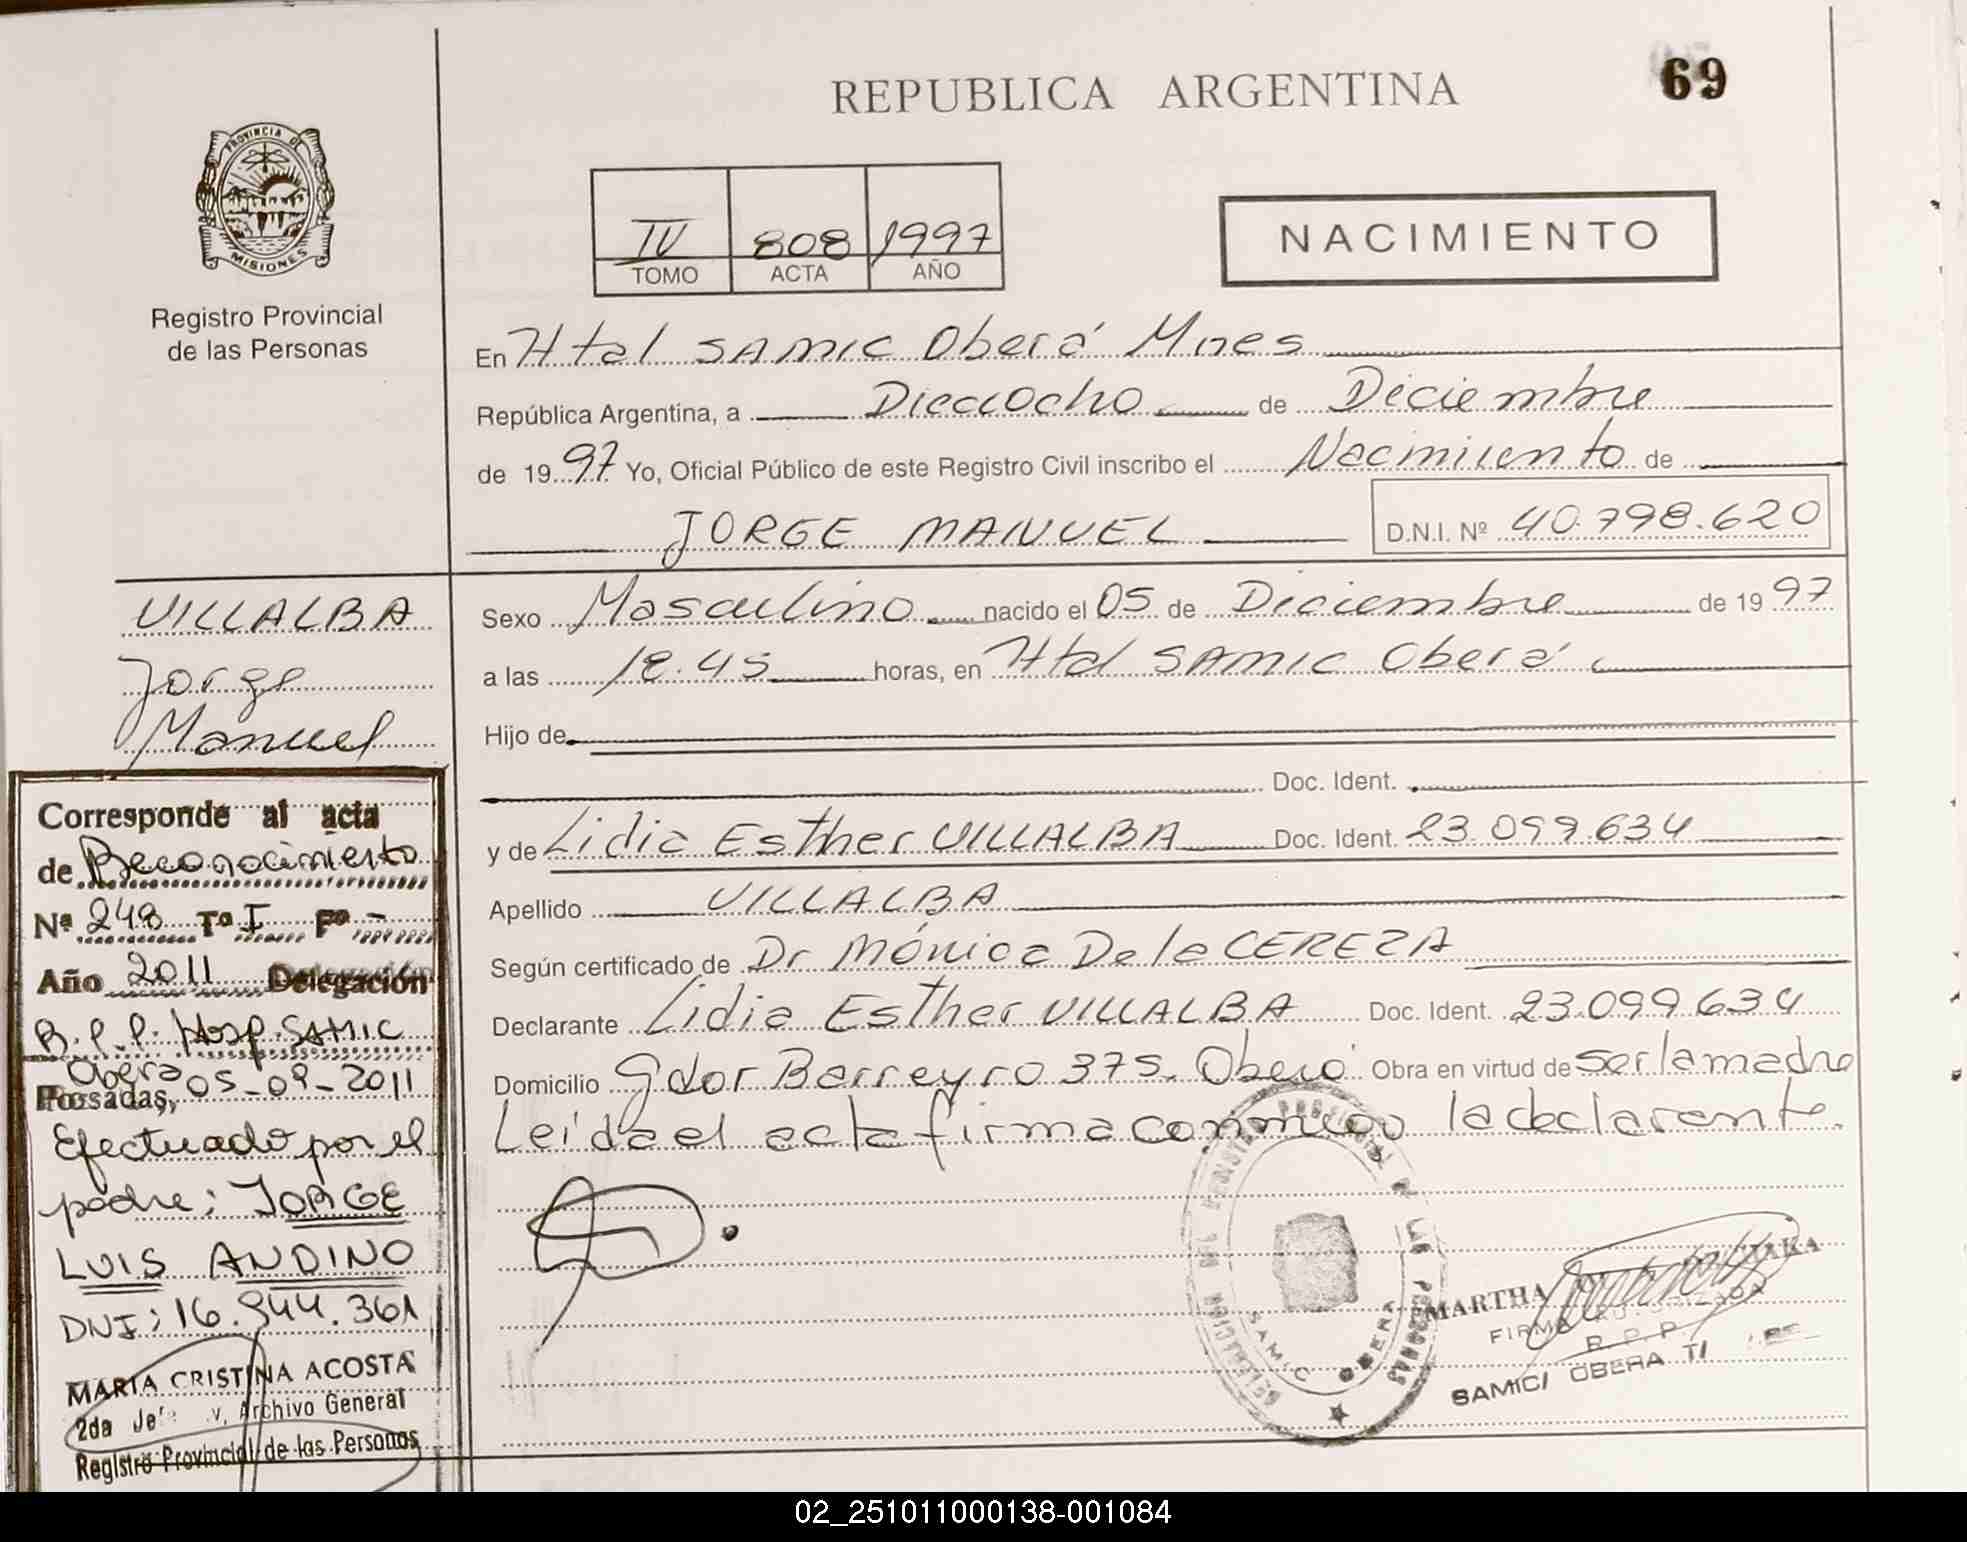 REPUBLICA ARGENTINA
69
PROVINCIA DE
MISIONES
Registro Provincial
de las Personas
IV 808 1997
TOMO ACTA AÑO
NACIMIENTO
En Htal SAMIC Oberá Mnes
República Argentina, a Dieciocho de Diciembre
de 1997 Yo, Oficial Público de este Registro Civil inscribo el Nacimiento de
JORGE MANUEL D.N.I. Nº 40.798.620
VILLALBA
Jorge
Manuel
Sexo Masculino nacido el 05 de Diciembre de 1997
a las 18.45 horas, en Htal SAMIC Oberá
Hijo de
Doc. Ident.
y de Lidia Esther VILLALBA Doc. Ident. 23.099.634
Apellido VILLALBA
Según certificado de Dr Mónica De la CEREZA
Declarante Lidia Esther VILLALBA Doc. Ident. 23.099.634
Domicilio Gdor Barreyro 375. Oberá Obra en virtud de ser la madre
Leída el acta firma conmigo la declarante.
Corresponde al acta
de Reconocimiento
Nº 248 Tº I Fº -
Año 2011 Delegación
R.P.P. Hosp. SAMIC
Oberá
Posadas, 05-09-2011
Efectuado por el
padre: JORGE
LUIS ANDINO
DNI: 16.944.361
MARIA CRISTINA ACOSTA
2da Archivo General
Registro Provincial de las Personas
SAMIC OBERA
MARTHA
FIRMA AUTORIZADA
R.P.P.
SAMIC/ OBERA
02_251011000138-001084